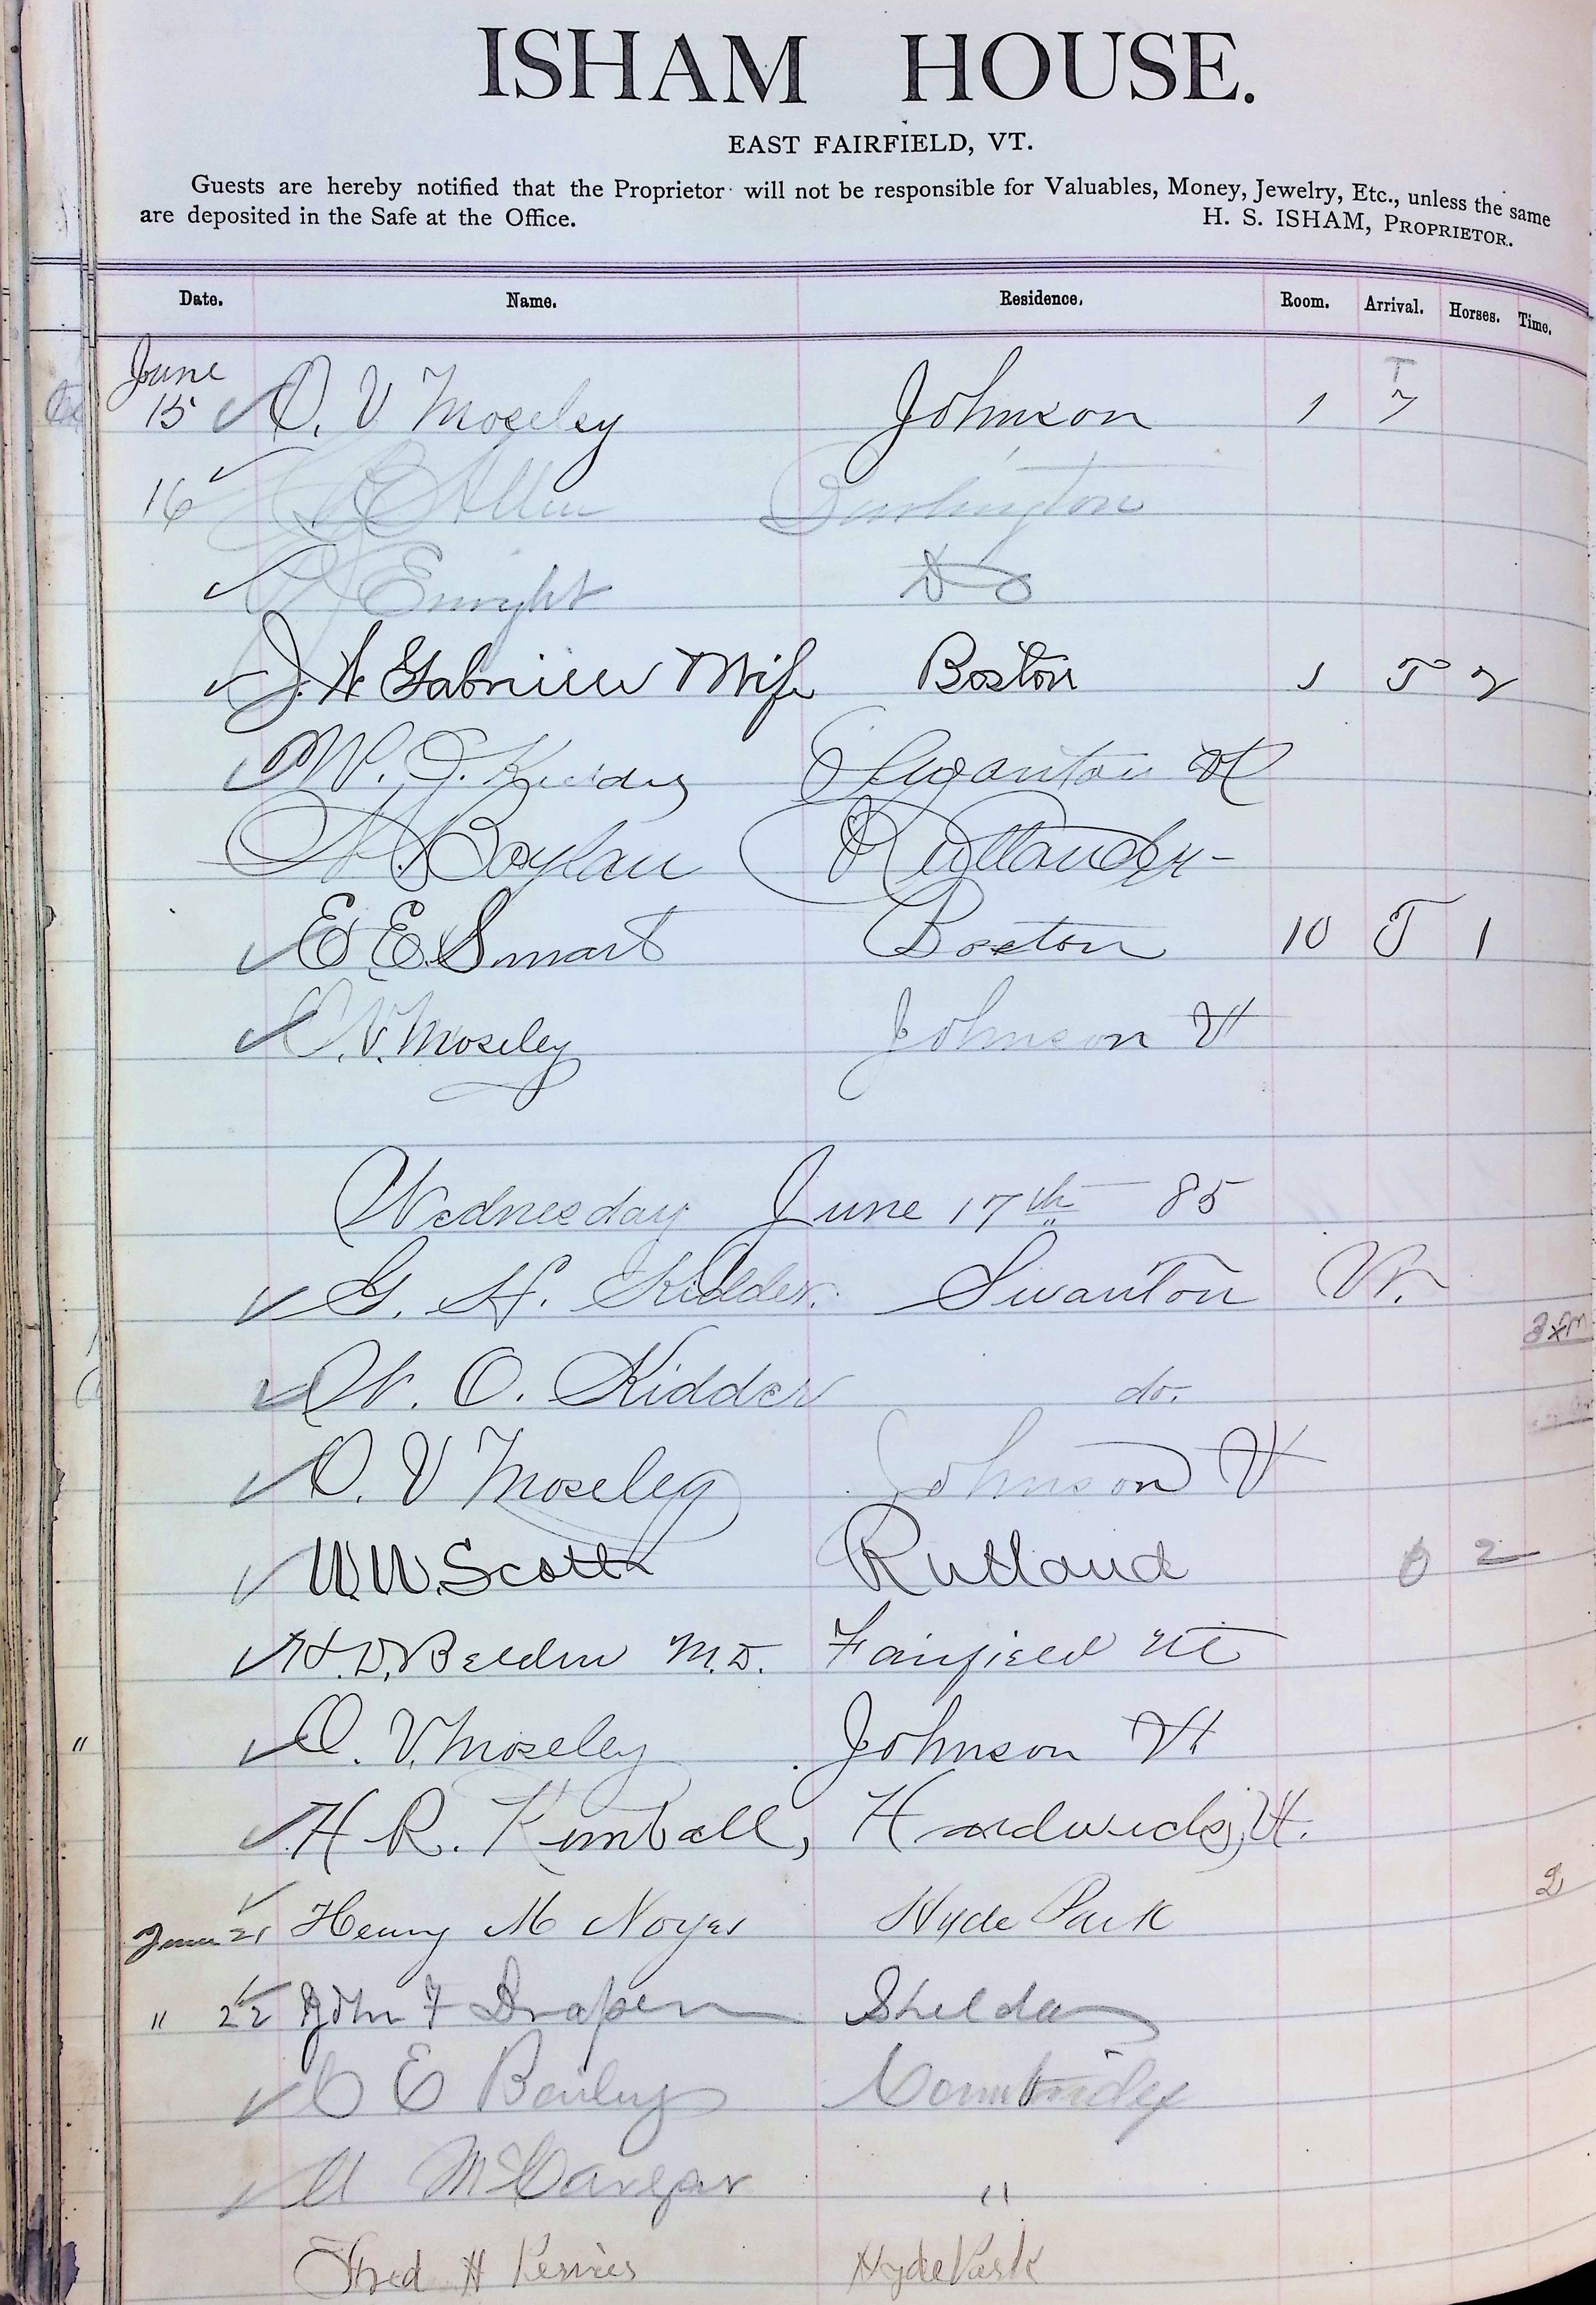 ISHAM HOUSE.
EAST FAIRFIELD, VT.
Guests are hereby notified that the Proprietor will not be responsible for Valuables, Money, Jewelry, Etc., unless the same
are deposited in the Safe at the Office. H. S. ISHAM, PROPRIETOR.
Date. Name. Residence. Room. Arrival. Horses. Time.
June
15 O. V Moseley Johnson 1 T 7
16 Allen Burlington
Enright Do
J. A Gabriel Wife Boston 1 T 2
W. Swanton Vt
Boylan Rutland
E E Smart Boston 10 T 1
O. V. Moseley Johnson Vt
Wednesday June 17th 85
G. H. Kidder. Swanton Vt.
W. O. Kidder do.
O. V Moseley Johnson Vt
W. W. Scott Rutland 2
H. D. Belden M.D. Fairfield Vt
" O. V. Moseley Johnson Vt
H R. Kimball, Hardwick, Vt.
June 21 Henry M Noyes Hyde Park 2
" 22 John F Draper Sheldon
C E Bailey Cambridge
M "
Fred H Hyde Park